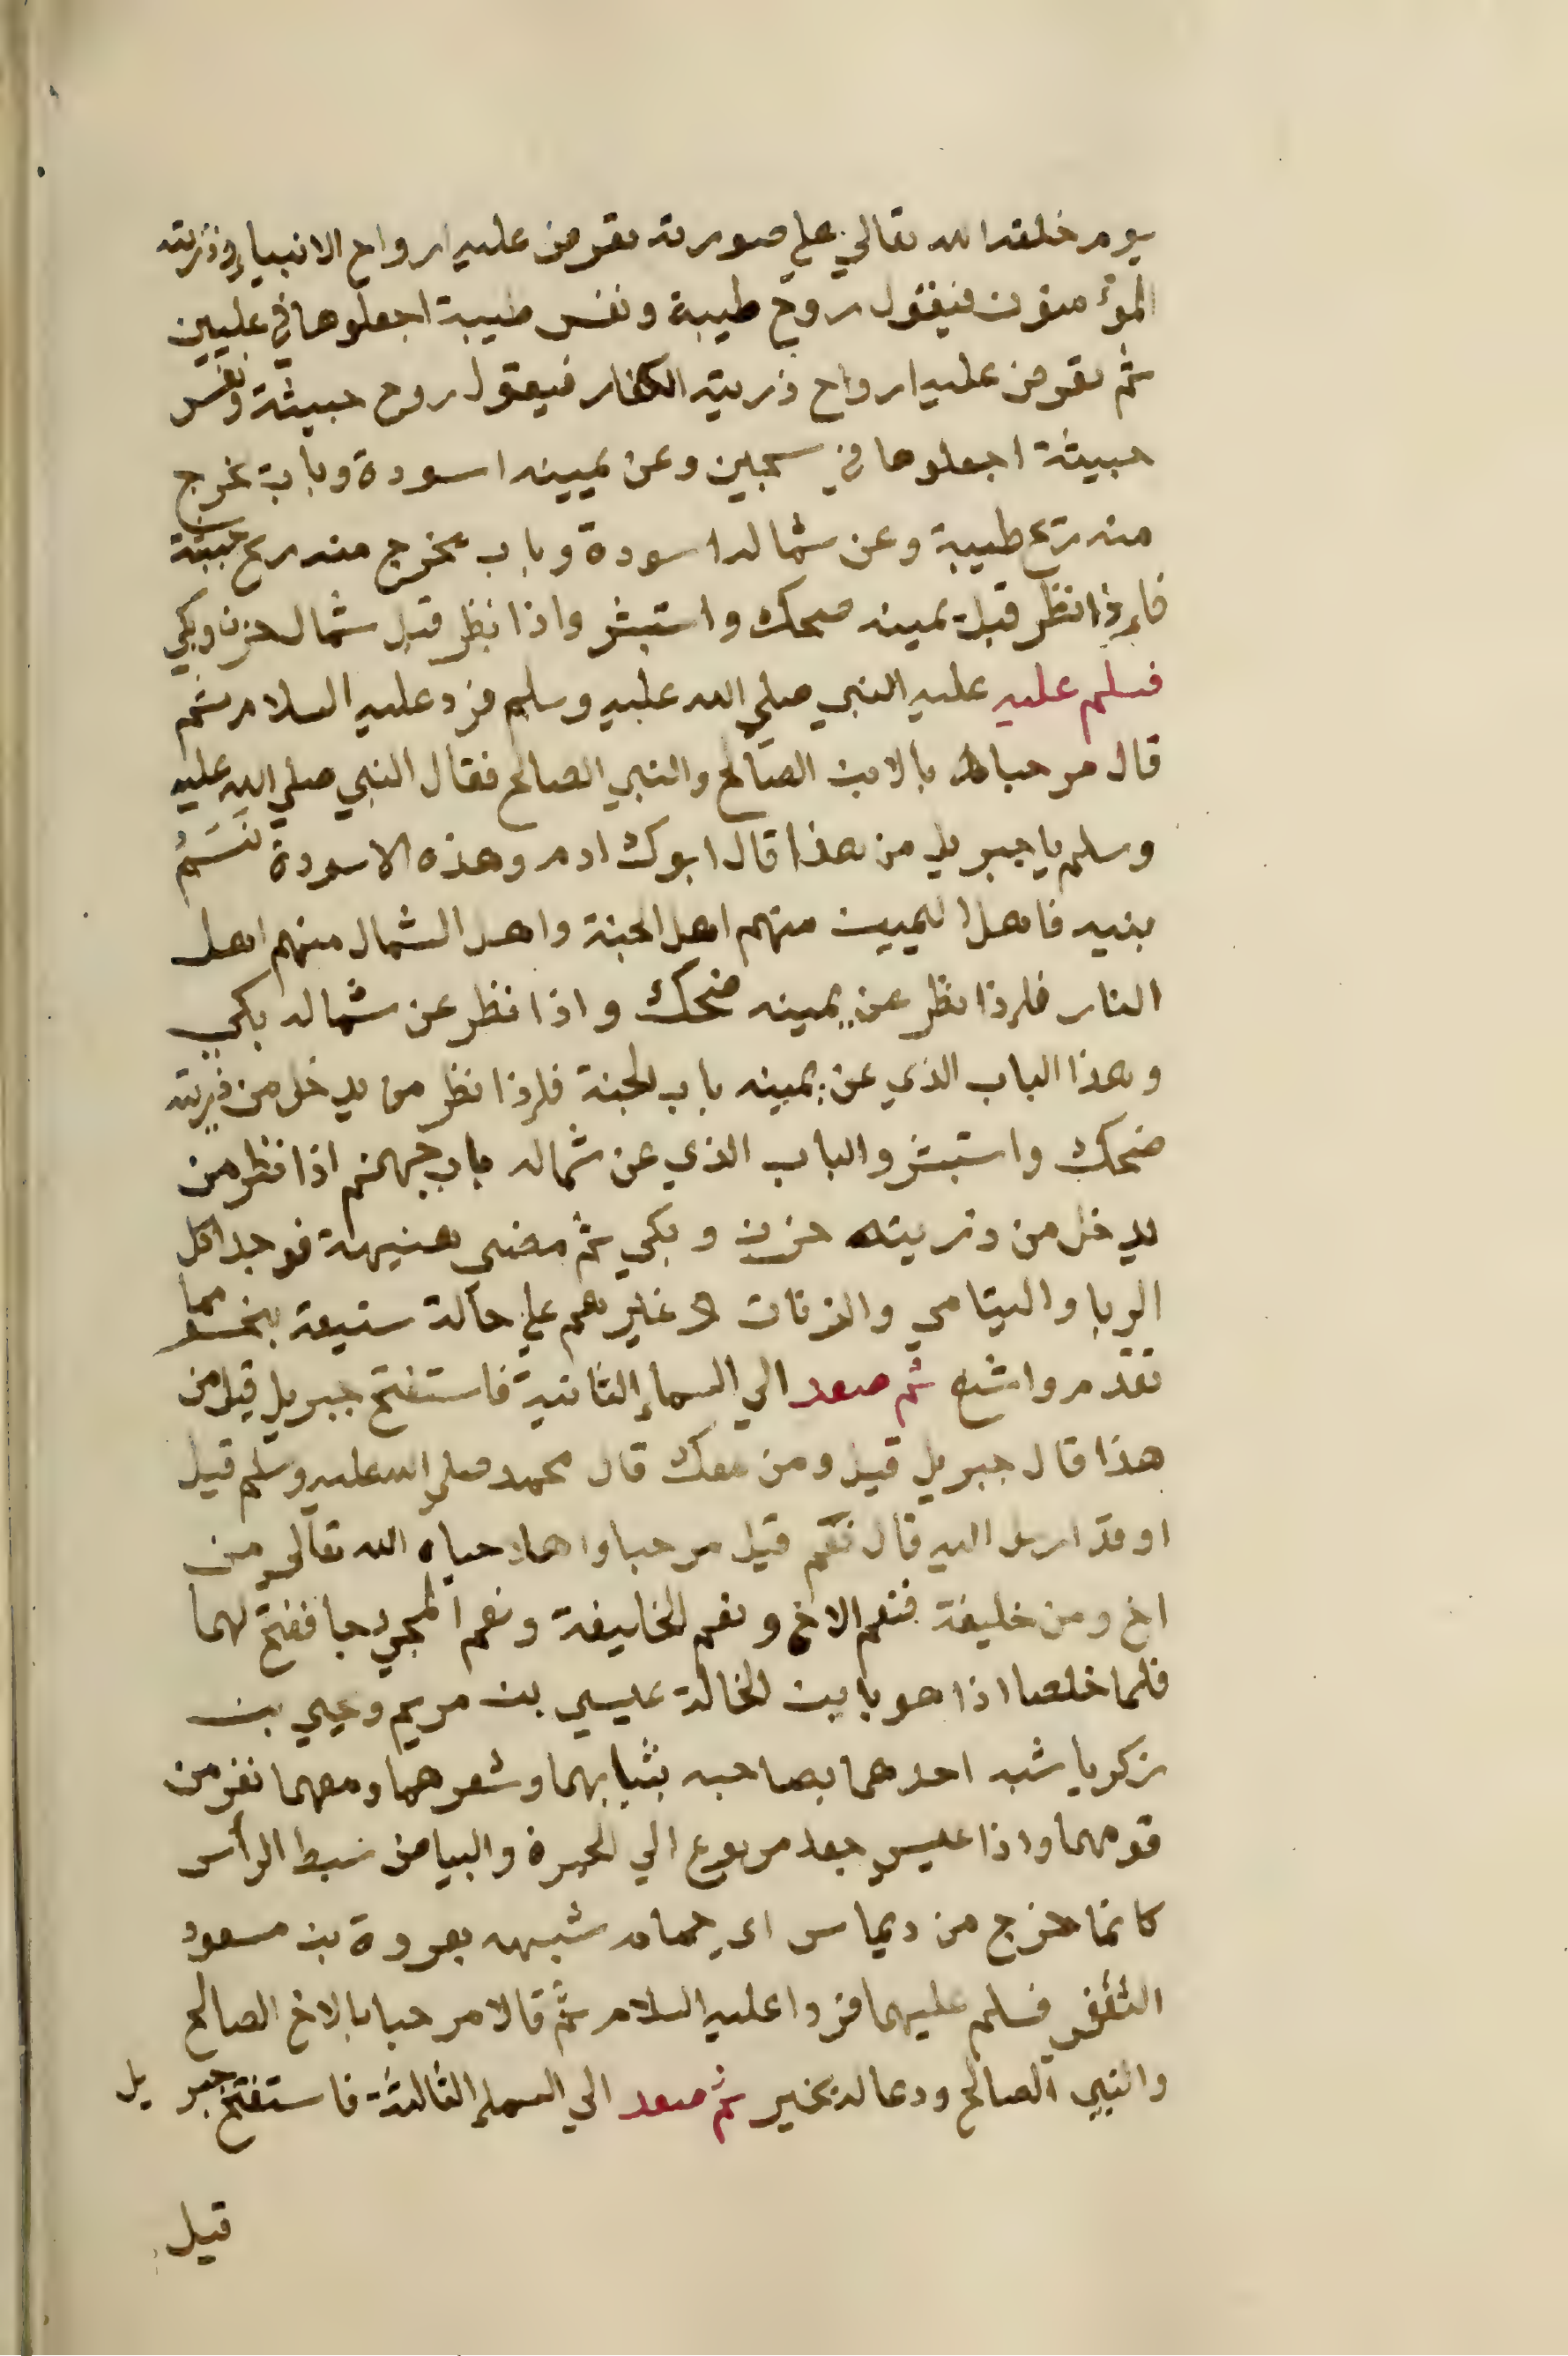 يوم خلقه الله تعالي علي صورته تعرض عليه ارواح الانبياء وذريته
المؤمنون فيقول روح طيبة ونفس طيبة اجعلوها في عليين
ثم تعرض عليه ارواح ذريته الكفار فيقول روح خبيثة ونفس
خبيثة اجعلوها في سجين وعن يمينه اسودة وباب يخرج
منه ريح طيبة وعن شماله اسودة وباب يخرج منه ريح خبيثة
فاذا نظر قبل يمينه ضحك واستبشر واذا نظر قبل شماله حزن وبكي
فسلم عليه عليه النبي صلي الله عليه وسلم فرد عليه السلام ثم
قال مرحبا بالابن الصالح والنبي الصالح فقال النبي صلي الله عليه
وسلم يا جبريل من هذا قال ابوك ادم وهذه الاسودة نَسَمُ
بنيه فاهل اليمين منهم اهل الجنة واهل الشمال منهم اهل
النار فاذا نظر عن يمينه ضحك واذا نظر عن شماله بكي
وهذا الباب الذي عن يمينه باب الجنة فاذا نظر من يدخل من ذريته
ضحك واستبشر والباب الذي عن شماله باب جهنم اذا نظر من
يدخل من ذريته حزن وبكي ثم مضي هنيهة فوجد اكل
الربا واليتامي والزنات وغيرهم علي حالة شنيعة بنحو مما
تقدم واشنع ثم صعد الي السماء الثانية فاستفتح جبريل قيل من
هذا قال جبريل قيل ومن معك قال محمد صلي الله عليه وسلم قيل
اوقد ارسل اليه قال نعم قيل مرحبا واهلا حياه الله تعالي من
اخ ومن خليفة فنعم الاخ ونعم الخليفة ونعم المجيء جا ففتح لهما
فلما خلصا اذا هو بابن الخالة عيسي بن مريم ويحيي بن
زكريا شبه احدهما بصاحبه بثيابهما وشعرهما ومعهما نفر من
قومهما واذا عيسي جعد مربوع الي الحمرة والبياض سبط الرأس
كانما خرج من ديماس اي حمام شبهه بعروة بن مسعود
الثقفي فسلم عليهما فردا عليه السلام ثم قالا مرحبا بالاخ الصالح
والنبي الصالح ودعا له بخير ثم صعد الي السماء الثالثة فاستفتح جبريل
قيل